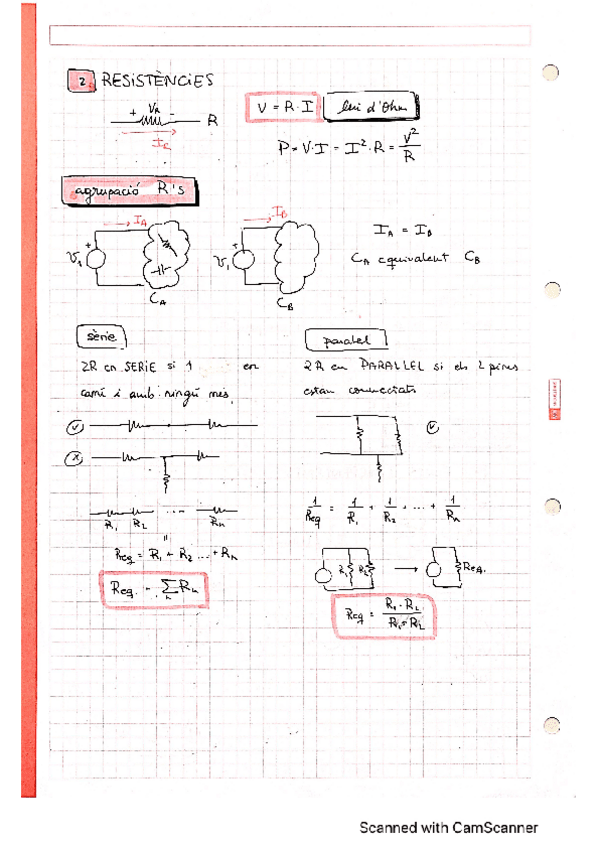 2 RESISTÈNCIES
+ VR -
R
IR
V = R·I
llei d'Ohm
P = V·I = I²·R = V²/R
agrupació R's
IA
+
V1
CA
IB
+
V1
CB
IA = IB
CA equivalent CB
sèrie
2R en SERIE si 1 en
comú i amb ningú més.
V
X
R1 R2 ... Rn
=
Req = R1 + R2 ... + Rn
Req = ∑ Rn
n
paral·lel
2R en PARAL·LEL si els 2 pines
estan connectats
V
1/Req = 1/R1 + 1/R2 + ... + 1/Rn
R1 R2 → Req.
Req = R1·R2 / R1+R2
Scanned with CamScanner